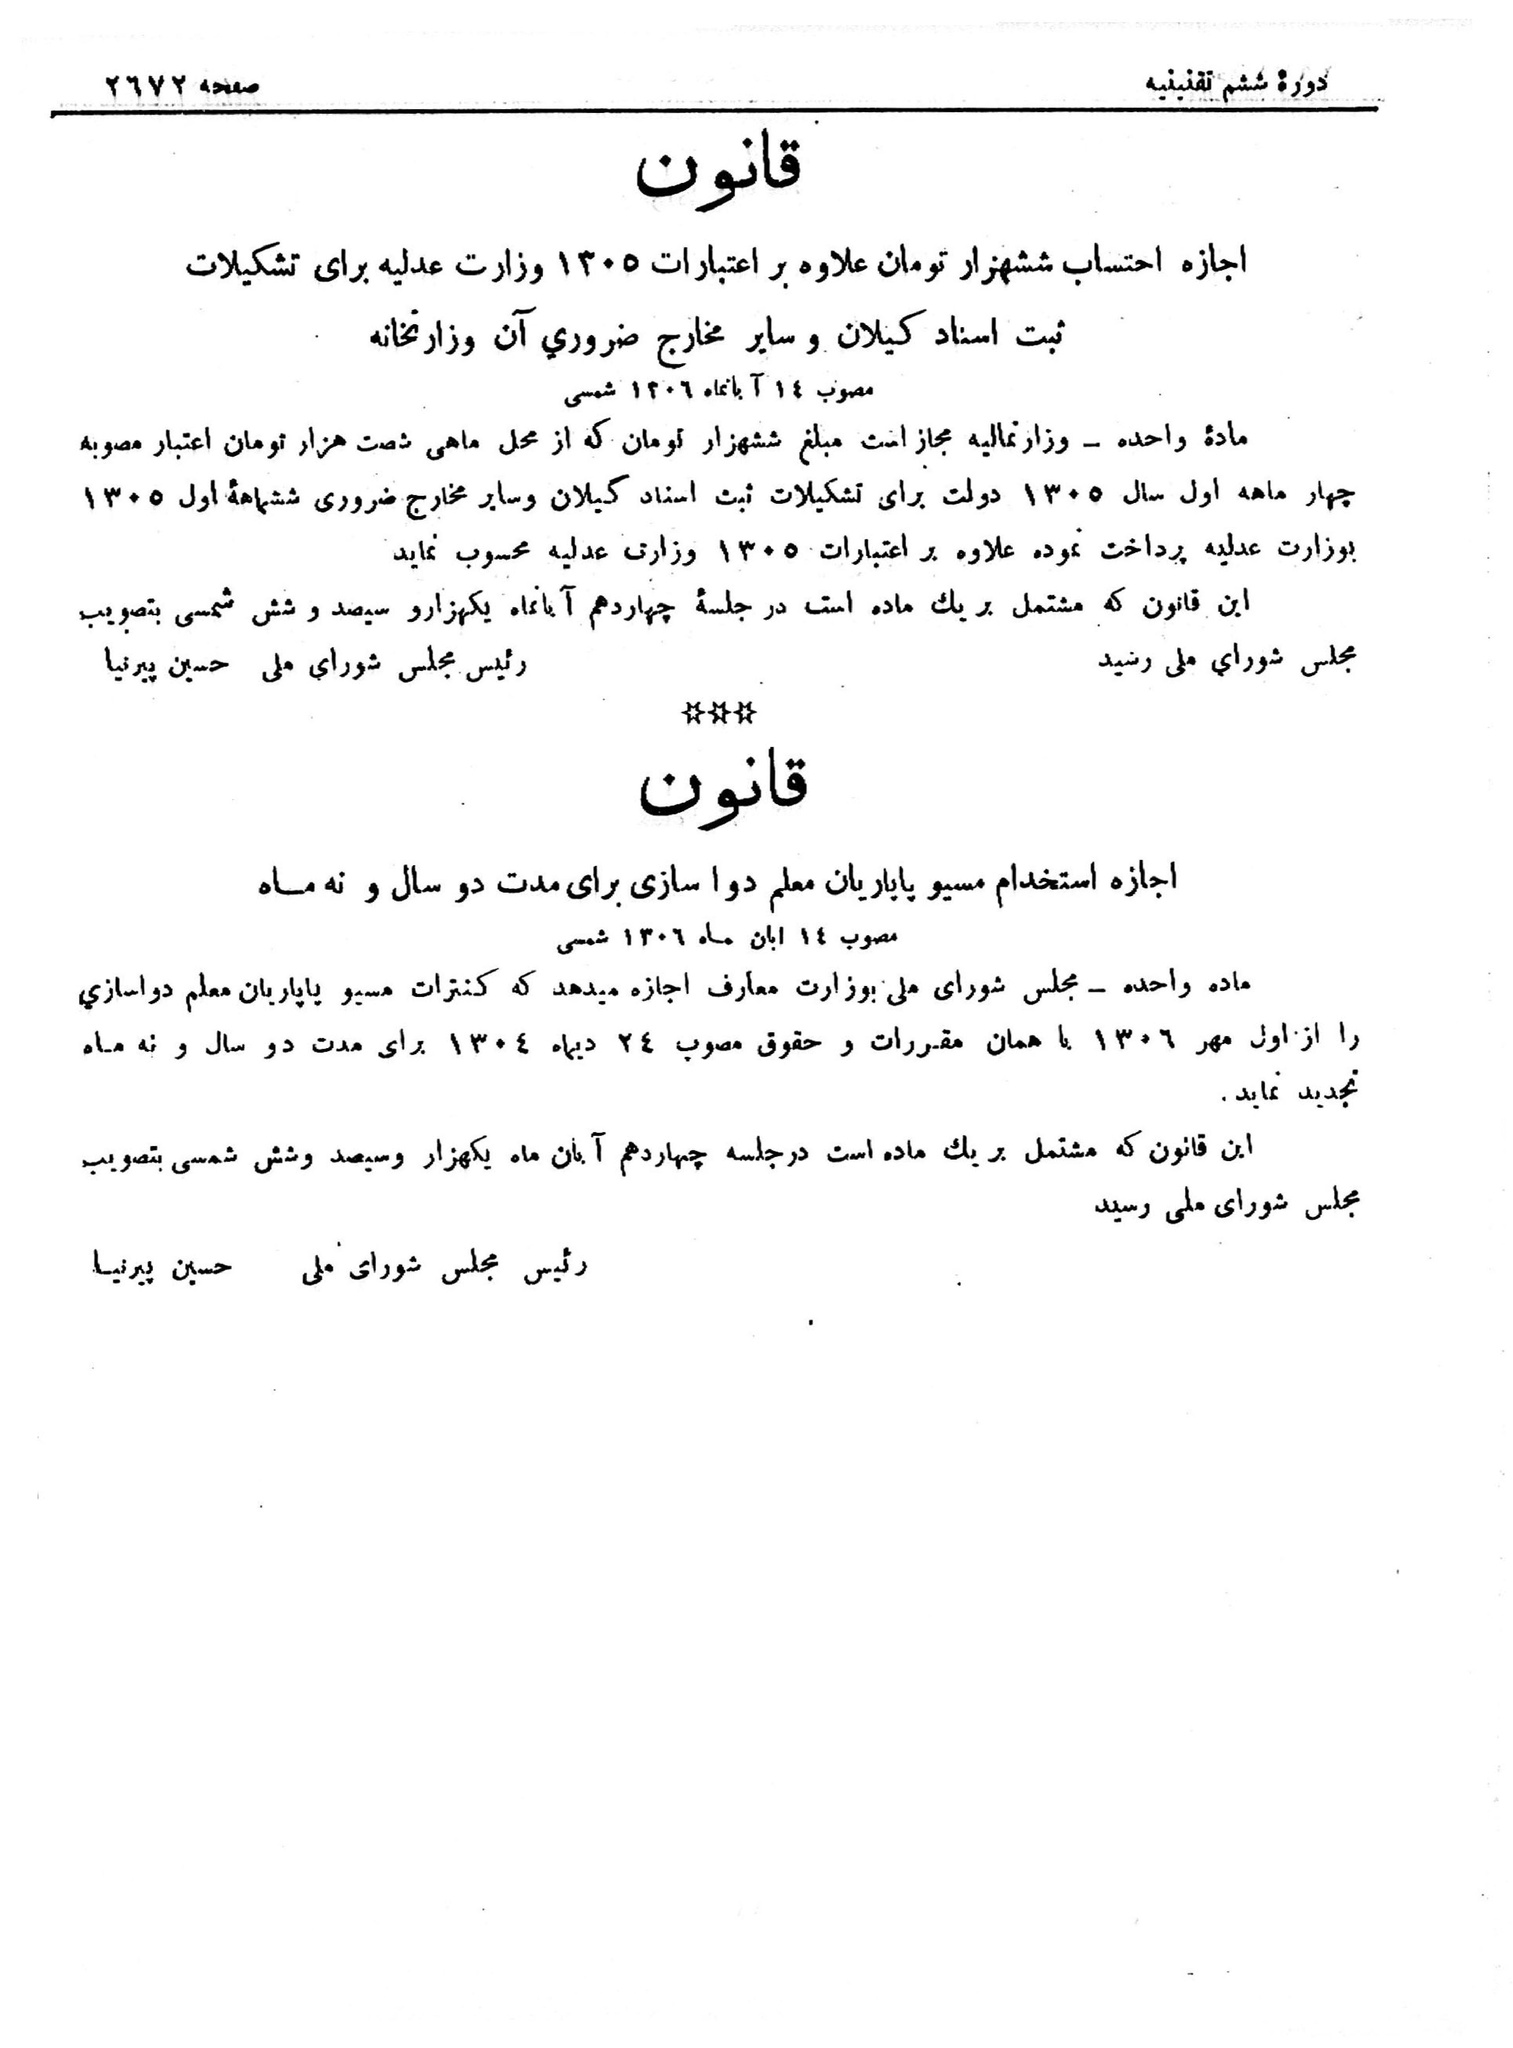 دورهٔ ششم تقنینیه
صفحه ٢٦٧٢
قانون
اجازه احتساب ششهزار تومان علاوه بر اعتبارات ١٣٠٥ وزارت عدلیه برای تشکیلات
ثبت اسناد کیلان و سایر مخارج ضروري آن وزارتخانه
مصوب ١٤ آبانماه ١٣٠٦ شمسی
مادهٔ واحده ــ وزارتمالیه مجاز است مبلغ ششهزار تومان که از محل ماهی شصت هزار تومان اعتبار مصوبه
چهار ماهه اول سال ١٣٠٥ دولت برای تشکیلات ثبت اسناد کیلان وسایر مخارج ضروری ششماههٔ اول ١٣٠٥
بوزارت عدلیه پرداخت نموده علاوه بر اعتبارات ١٣٠٥ وزارت عدلیه محسوب نماید
این قانون که مشتمل بر یك ماده است در جلسهٔ چهاردهم آبانماه یکهزارو سیصد و شش شمسی بتصویب
مجلس شورای ملی رسید
رئیس مجلس شورای ملی حسین پیرنیا
***
قانون
اجازه استخدام مسیو پاپاریان معلم دوا سازی برای مدت دو سال و نه مـاه
مصوب ١٤ ابان مـاه ١٣٠٦ شمسی
ماده واحده ــ مجلس شورای ملی بوزارت معارف اجازه میدهد که کنترات مسیو پاپاریان معلم دواسازي
را از اول مهر ١٣٠٦ با همان مقـررات و حقوق مصوب ٢٤ دیماه ١٣٠٤ برای مدت دو سال و نه مـاه
تجدید نماید .
این قانون که مشتمل بر یك ماده است درجلسه چهاردهم آبان ماه یکهزار وسیصد وشش شمسی بتصویب
مجلس شورای ملی رسید
رئیس مجلس شورای ملی حسین پیرنیـا